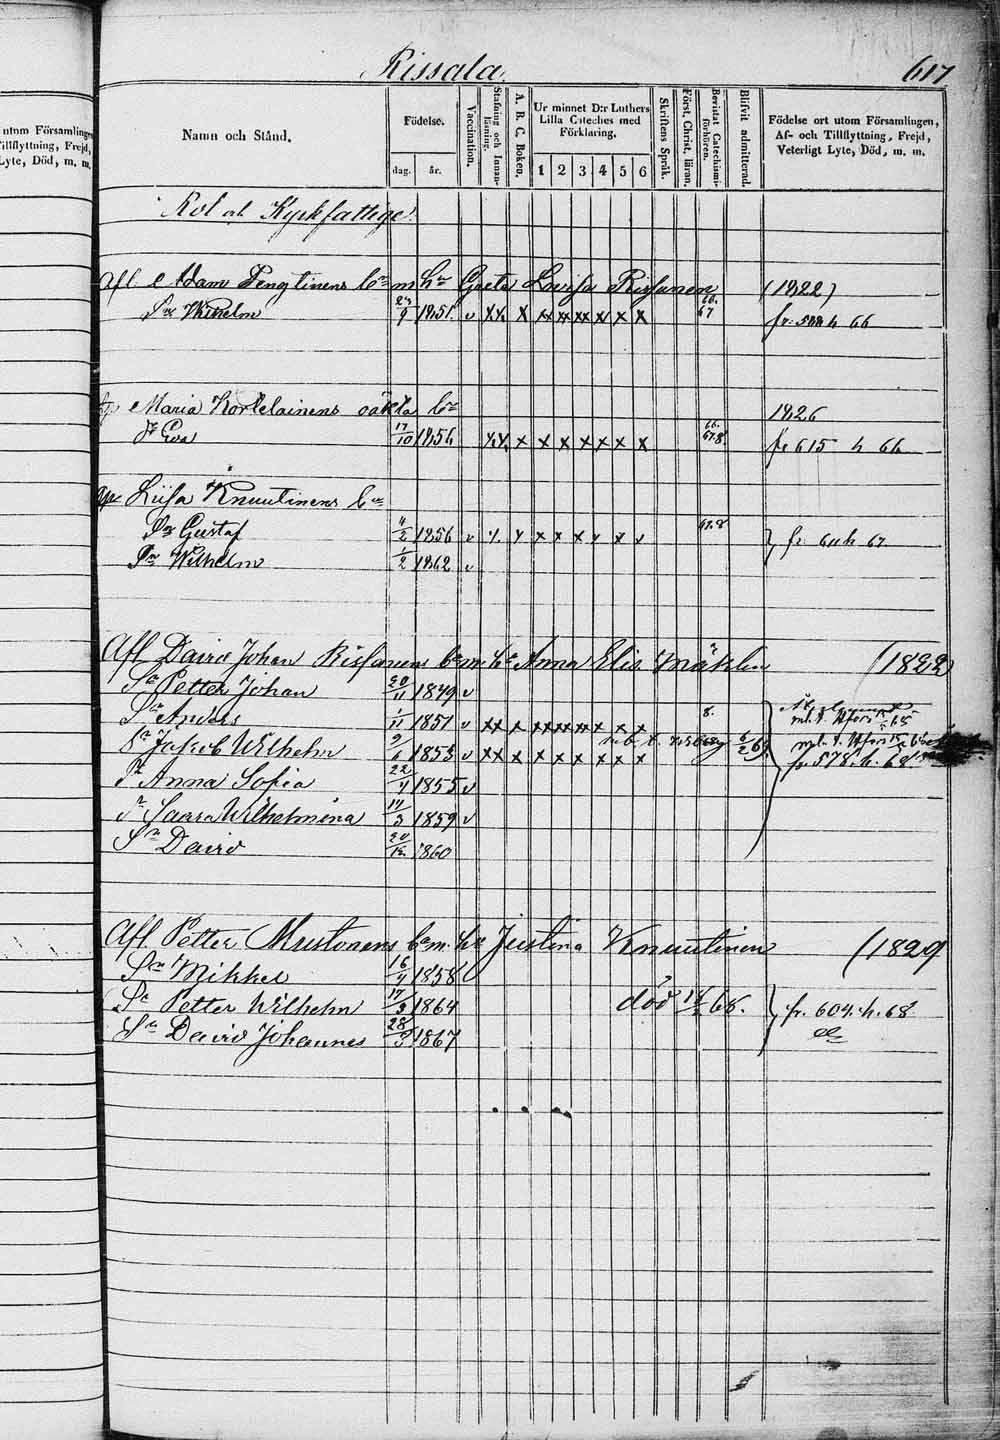 Rissala.
617
utom Församlingen
Tillflyttning, Frejd,
Lyte, Död, m. m.
Namn och Stånd.
Födelse.
dag.
år.
Vaccination.
Stafning och Innanläsning.
A. B. C. Boken.
Ur minnet D:r Luthers Lilla Cateches med Förklaring.
1 2 3 4 5 6
Skriftens Språk.
Först. Christ. läran.
Bevistat Catechismiförhören.
Blifvit admitterad.
Födelse ort utom Församlingen,
Af- och Tillflyttning, Frejd,
Veterligt Lyte, Död, m. m.
Rot och Kyrkfattige.
Afl. Adam Pengtinens Bn m hu Greta Lovisa Rissanen (1822)
Sn Wilhelm 23/9 1851. v xx x xx xx xx xx x x 66. 67 fr. h 66
Maria Kortelainens oäkta Bn 1826
Dr Eva 17/10 1856 xx x x x x x x x 66. 67.8. fr 615 h 66
Liisa Knuutinens Bn
Sn Gustaf 4/2 1856 v x x x x x x x v 67.8 fr. 611 h 67
Sn Wilhelm 1/2 1862 v
Afl David Johan Rissanens Bn m he Anna Elis. Mäklin (1822)
Sn Petter Johan 30/11 1849 v
Sn Anders 1/11 1851 v xx x xx xx xx x x 8.
Sn Jakob Wilhelm 9/6 1853 v xx x x x x x x x fr. 578. h. 68
Dr Anna Sofia 22/4 1855 v
Dr Saara Wilhelmina 14/3 1859 v
Sn David 30/12 1860
Afl Petter Mustonens Bn m. he Justina Knuutinen (1829
Sn Mikkel 16/4 1858
Sn Petter Wilhelm 17/3 1864 död 68. fr. 604. h. 68
Sn David Johannes 28/3 1867